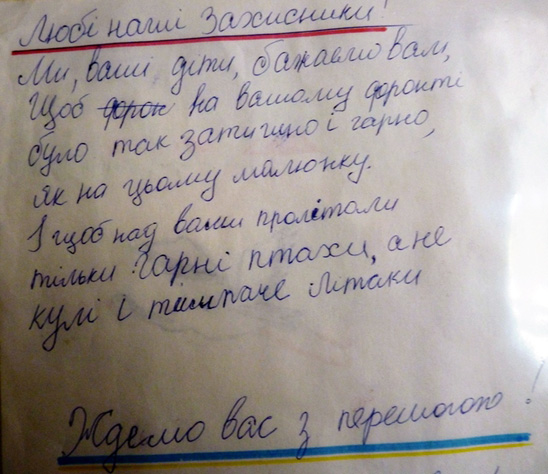 Любі наші Захисники!
Ми, ваші діти, бажаємо вам,
Щоб фрон на вашому фронті
було так затишно і гарно,
як на цьому малюнку.
І щоб над вами пролітали
тільки гарні птахи, а не
кулі і тим паче літаки
Ждемо вас з перемогою!